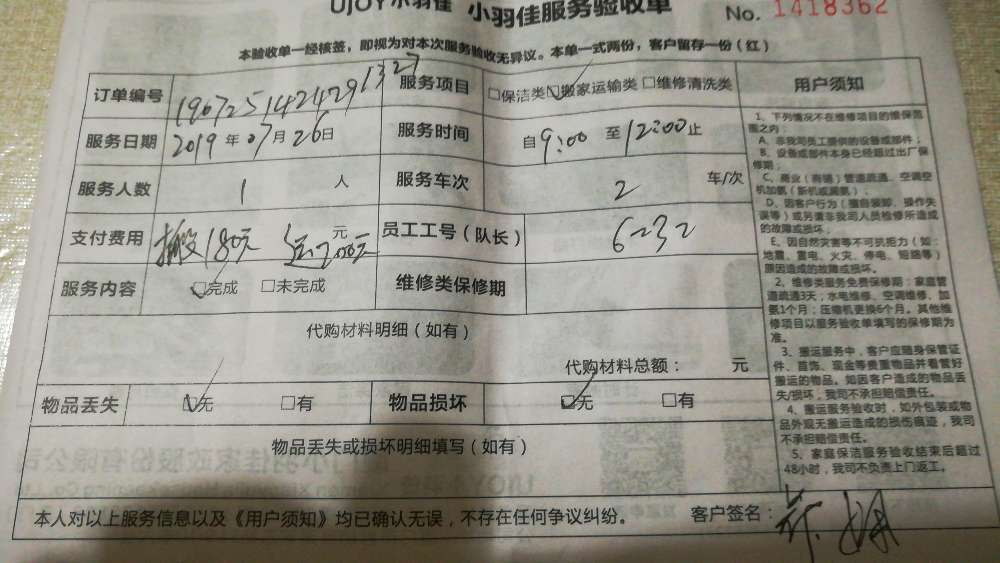 UJOY小羽佳 小羽佳服务验收单 No. 1418362
本验收单一经核签，即视为对本次服务验收无异议。本单一式两份，客户留存一份（红）
订单编号 19072514242791327 服务项目 □保洁类 ☑搬家运输类 □维修清洗类
服务日期 2019年07月26日 服务时间 自9:00至12:00止
服务人数 1 人 服务车次 2 车/次
支付费用 搬180元 运200元 元 员工工号（队长） 6232
服务内容 ☑完成 □未完成 维修类保修期
代购材料明细（如有）
代购材料总额： 元
物品丢失 ☑无 □有 物品损坏 ☑无 □有
物品丢失或损坏明细填写（如有）
用户须知
1、下列情况不在维修项目的维保范
围之内：
A、非我司员工提供的设备或部件；
B、设备或部件本身已经超过出厂保
修期；
C、商业（商铺）管道疏通、空调空
机加氨（新机或漏氨）；
D、因客户行为（擅自装卸、操作失
误等）或另请非我司人员检修所造成
的故障或损坏；
E、因自然灾害等不可抗拒力（如：
地震、雷电、火灾、停电、短路等）
原因造成的故障或损坏。
2、维修类服务免费保修期：家庭管
道疏通3天；水电维修、空调维修、加
氨1个月；压缩机更换6个月。其他维
修项目以服务验收单填写的保修期为
准。
3、搬运服务中，客户应随身保管证
件、首饰、现金等贵重物品并看管好
搬运的物品。如因客户造成的物品丢
失/损坏，我司不承担赔偿责任。
4、搬运服务验收时，如外包装或物
品外观无搬运造成的损伤痕迹，我司
不承担赔偿责任。
5、家庭保洁服务验收结束后超过
48小时，我司不负责上门返工。
本人对以上服务信息以及《用户须知》均已确认无误，不存在任何争议纠纷。 客户签名：